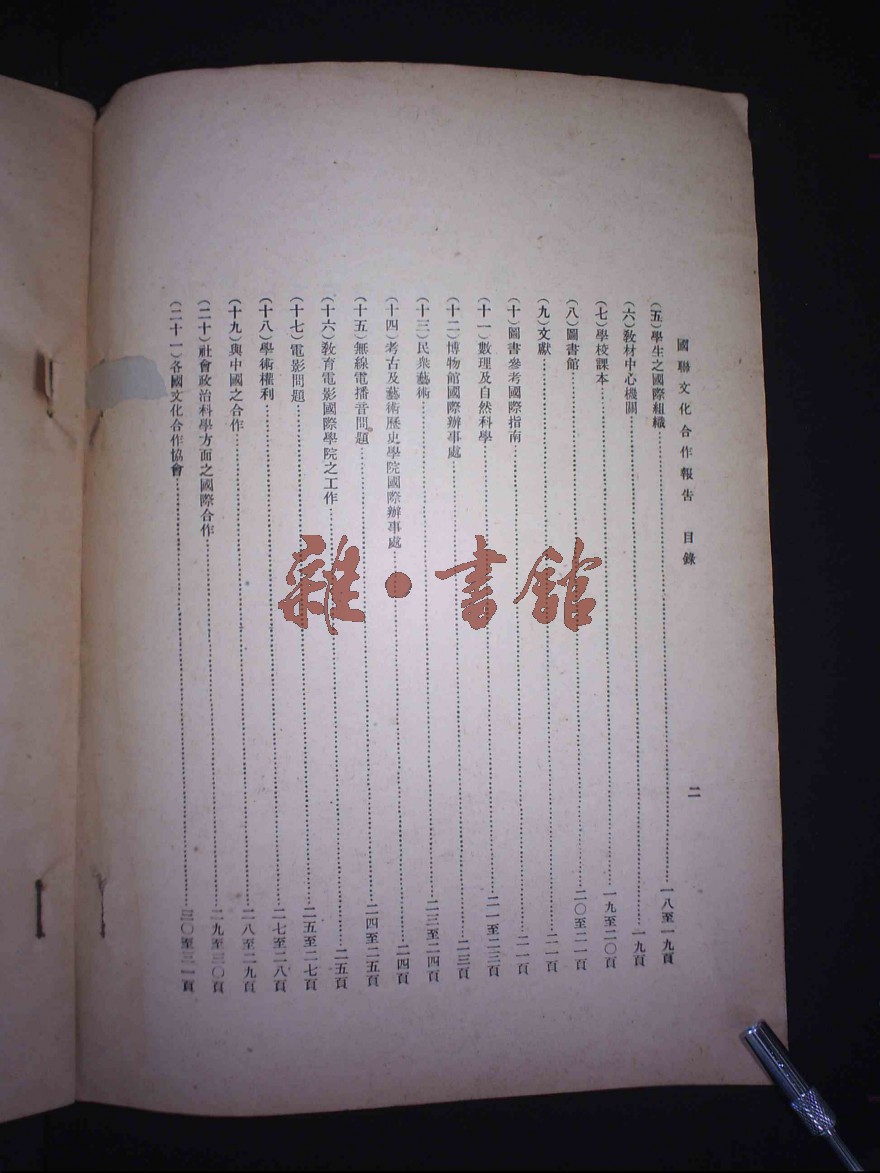 國聯文化合作報告　目錄　二
（五）學生之國際組織……一八至一九頁
（六）教材中心機關……一九頁
（七）學校課本……一九至二〇頁
（八）圖書館……二〇至二一頁
（九）文獻……二一頁
（十）圖書參考國際指南……二一頁
（十一）數理及自然科學……二一至二三頁
（十二）博物館國際辦事處……二三頁
（十三）民衆藝術……二三至二四頁
（十四）考古及藝術歷史學院國際辦事處……二四頁
（十五）無線電播音問題……二四至二五頁
（十六）教育電影國際學院之工作……二五頁
（十七）電影問題……二五至二七頁
（十八）學術權利……二七至二八頁
（十九）與中國之合作……二八至二九頁
（二十）社會政治科學方面之國際合作……二九至三〇頁
（二十一）各國文化合作協會……三〇至三一頁
雜·書館